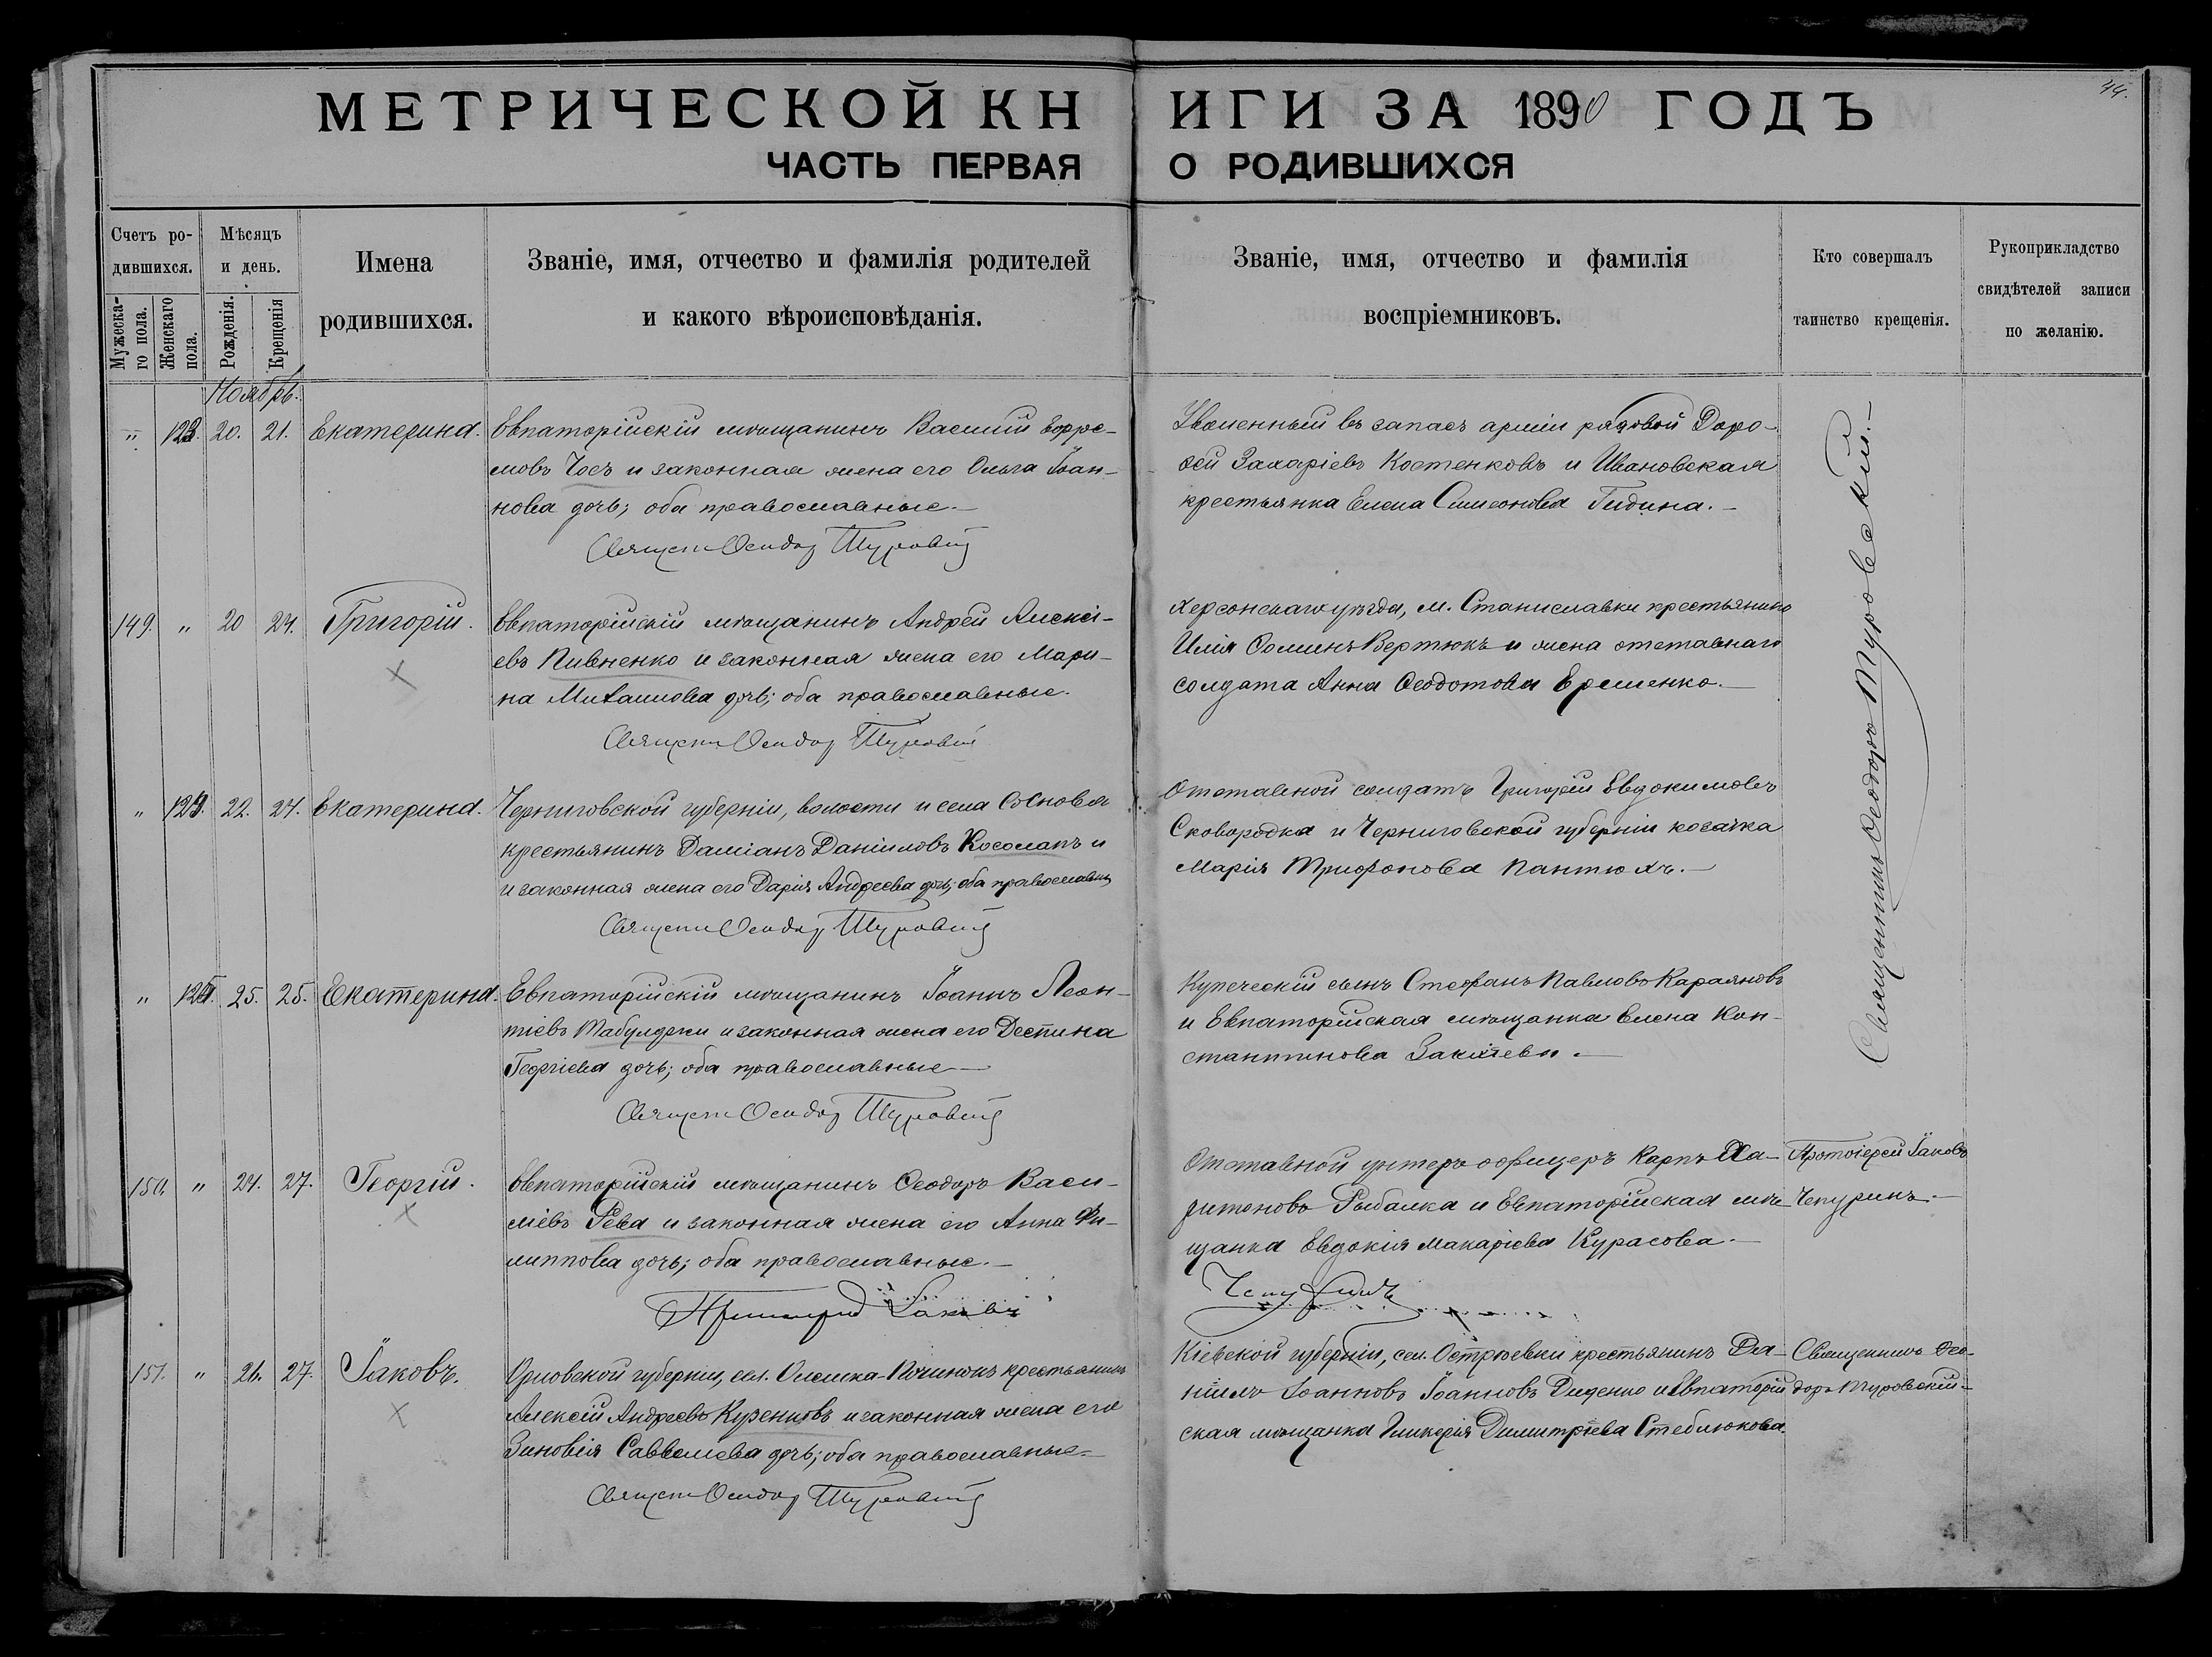 44.
МЕТРИЧЕСКОЙ КНИГИ ЗА 1890 ГОДЪ
ЧАСТЬ ПЕРВАЯ О РОДИВШИХСЯ
Счетъ ро-
дившихся.
Мужеска-
го пола.
Женскаго
пола.
Мѣсяцъ
и день.
Рожденія.
Крещенія
Имена
родившихся.
Званіе, имя, отчество и фамилія родителей
и какого вѣроисповѣданія.
Званіе, имя, отчество и фамилія
воспріемниковъ.
Кто совершалъ
таинство крещенія.
Рукоприкладство
свидѣтелей записи
по желанію.
Ноябрь.
" 123. 20. 21. Екатерина.
Евпаторійскій мѣщанинъ Василій Ефре-
мовъ Чосъ и законная жена его Ольга Іоан-
нова дочь; оба православные.—
Священ Ѳеодор Туровский
Уволенный въ запасъ арміи рядовой Доро-
ѳей Захаріевъ Костенковъ и Ивановская
крестьянка Елена Симеонова Гидина.—
Священникъ Ѳеодоръ Туровскій.—
149. " 20 24. Григорій.
Евпаторійскій мѣщанинъ Андрей Алексі-
евъ Пивненко и законная жена его Мари-
на Михаилова дочь; оба православные.
Священ Ѳеодор Туровский
Херсонскаго уѣзда, м. Станиславки крестьянинъ
Илія Ѳоминъ Вертюкъ и жена отставнаго
солдата Анна Ѳеодотова Еременко.—
" 124. 22. 24. Екатерина.
Черниговской губерніи, волости и села
крестьянинъ Даміанъ Даніиловъ Косолапъ и
и законная жена его Дарія Андреева дочь; оба православны
Священ Ѳеодор Туровский
Отставной солдатъ Григорій Евдокимовъ
Сковородка и Черниговской губерніи козачка
Марія Трифонова Пантюхъ.—
" 125. 25. 25. Екатерина.
Евпаторійскій мѣщанинъ Іоаннъ Леон-
тіевъ Табулджи и законная жена его Деспина
Георгіева дочь; оба православные—
Священ Ѳеодор Туровский
Купеческій сынъ Стефанъ Павловъ Караяновъ
и Евпаторійская мѣщанка Елена Кон-
стантинова
150. " 24. 27. Георгій.
Евпаторійскій мѣщанинъ Ѳеодоръ Васи-
ліевъ Рева и законная жена его Анна Фи-
липпова дочь; оба православные.—
Протоіерей Іаковъ
Отставной унтеръ офицеръ Карпъ Ха-
ритоновъ Рыбалка и Евпаторійская мѣ-
щанка Евдокія Макаріева Курасова.—
Чепуринъ
Протоіерей Іаковъ
Чепуринъ.—
151. " 26. 27. Іаковъ.
Орловской губерніи, сел. Олешка-Починокъ крестьянинъ
Алексій Андреевъ Куренковъ и законная жена его
Зиновія Савельева дочь; оба православные.—
Священ Ѳеодор Туровский
Кіевской губерніи, сел. Острѣевки крестьянинъ Да-
ніилъ Іоанновъ Іоанновъ Диденко и Евпаторій
ская мѣщанка Гликерія Димитріева Стеблюкова.
Священникъ Ѳео-
доръ Туровскій—